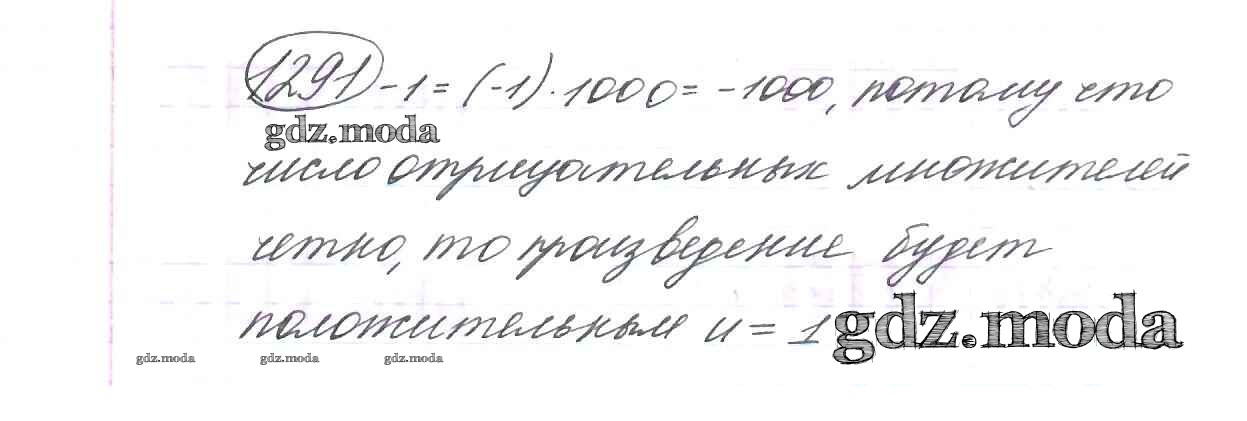 1291 -1 = (-1) · 1000 = -1000, потому что
gdz.moda
число отрицательных множителей
четно, то произведение будет
положительным и = 1
gdz.moda
gdz.moda gdz.moda gdz.moda